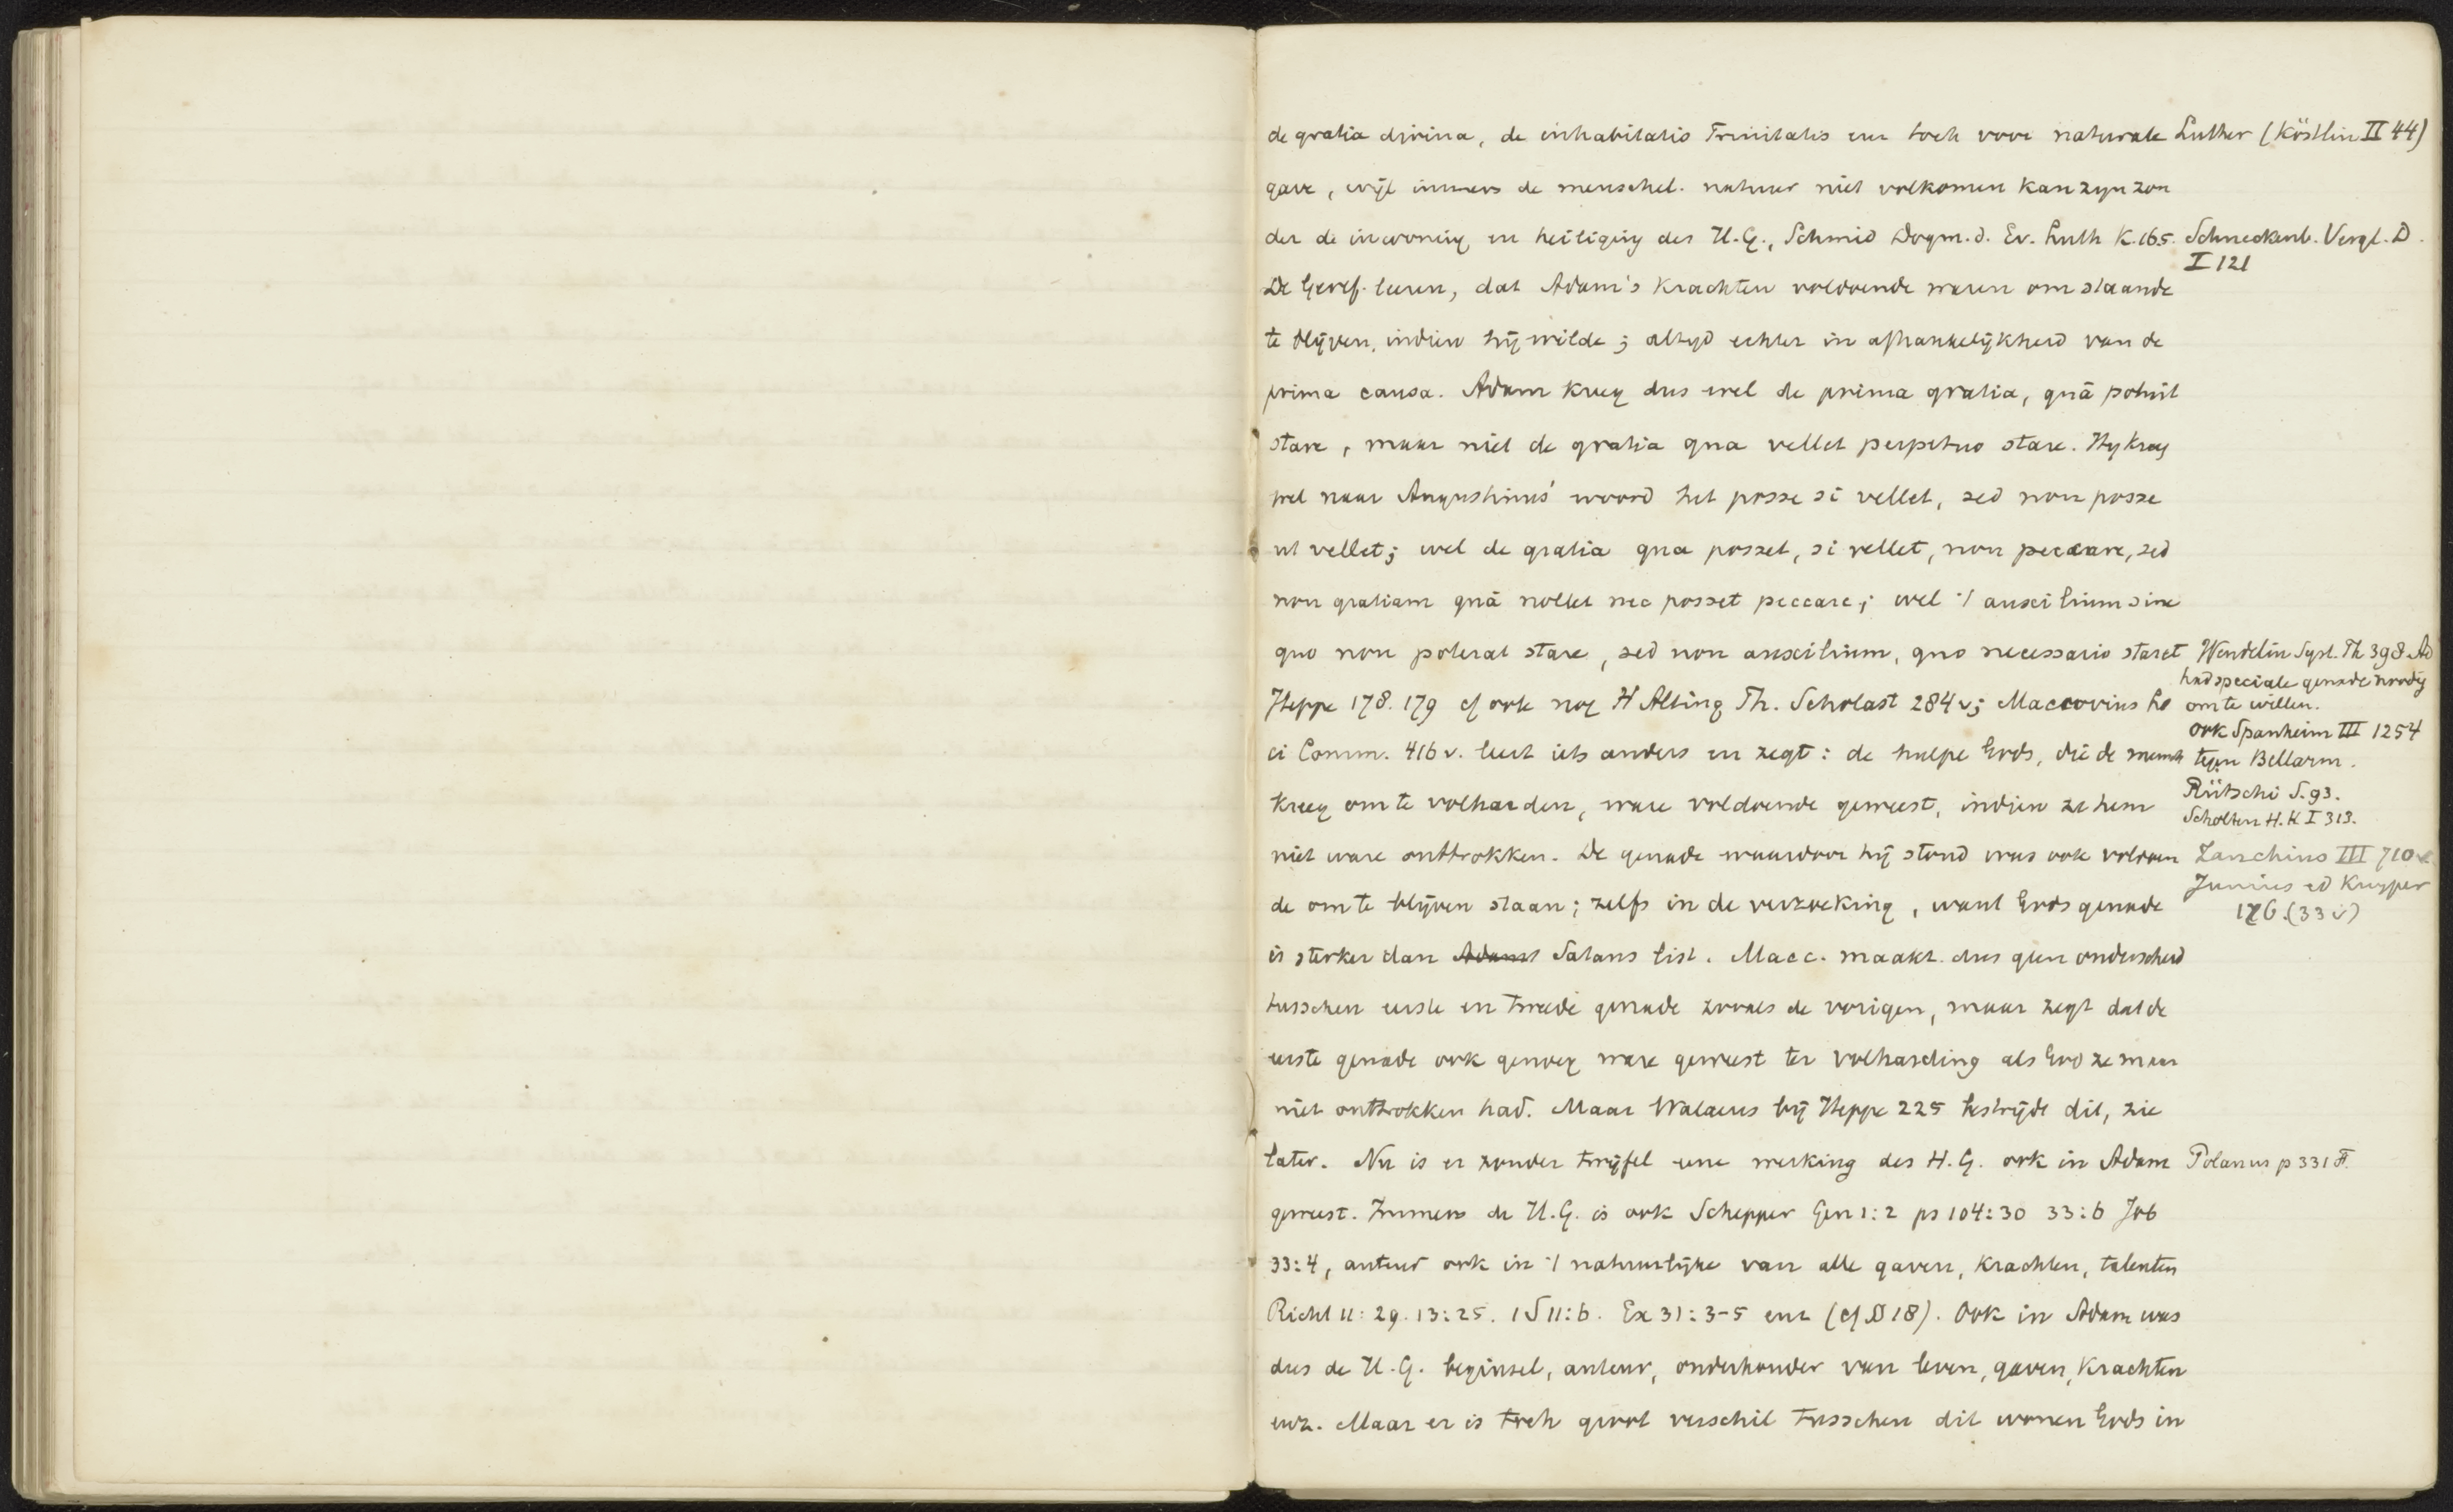 de gratia divina, de inhabitatio Trinitatis een toch voor naturale Luther (Köstlin II 44)
gave, wijl immers de menschel. natuur niet volkomen kan zyn zon
der de inwoning en heiliging des H.G., Schmid Dogm. d. Ev. Luth K. 165. Schneckenb. Vergl. D.
I 121
De Geref. leeren, dat Adam's krachten voldoende waren om staande
te blijven, indien hij wilde; altyd echter in afhankelijkheid van de
prima causa. Adam kreeg dus wel de prima gratia, quā potuit
stare, maar niet de gratia qua vellet perpetuo stare. Hy kreeg
wel naar Augustinus' woord het posse si vellet, sed non posse
ut vellet; wel de gratia qua posset, si vellet, non peccare, sed
non gratiam quā nollet nec posset peccare; wel 't auxilium sine
quo non poterat stare, sed non auxilium, quo necessario staret
Wendelin Syst. Th 398. Ad
had speciale genade noodig
om te willen.
ook Spanheim III 1254
tegen Bellarm.
Rütschi S. 93.
Scholten H.K I 313.
Zanchius III 710
Junius ed Kuyper
176. (33 v)
Heppe 178. 179 cf ook nog H Alting Th. Scholast 284 v; Maccovius Lo
ci Comm. 416 v. leert iets anders en zegt: de hulpe Gods, die de mensch
kreeg om te volharden, ware voldoende geweest, indien ze hem
niet ware onttrokken. De genade waardoor hij stond was ook voldoen
de om te blijven staan; zelfs in de verzoeking, want Gods genade
is sterker dan Adams Satans list. Macc. maakt dus geen onderscheid
tusschen eerste en tweede genade zooals de vorigen, maar zegt dat de
eerste genade ook genoeg ware geweest ter volharding als God ze maar
niet onttrokken had. Maar Walaeus bij Heppe 225 bestrijdt dit, zie
later. Nu is er zonder twijfel eene werking des H.G. ook in Adam Polanus p 331 F.
geweest. Immers de H.G. is ook Schepper Gen 1:2 ps 104:30 33:6 Job
33:4, auteur ook in 't natuurlijke van alle gaven, krachten, talenten
Richt 11:29. 13:25. 1 S 11:6. Ex 31:3-5 enz (cf § 18). Ook in Adam was
dus de H.G. beginsel, auteur, onderhouder van leven, gaven, krachten
enz. Maar er is toch groot verschil tusschen dit wonen Gods in